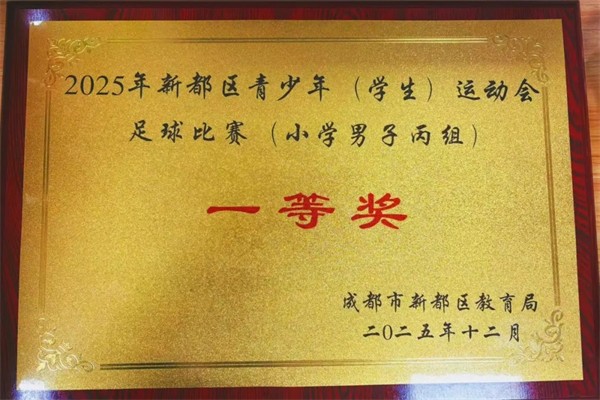 2025年新都区青少年（学生）运动会
足球比赛（小学男子丙组）
一等奖
成都市新都区教育局
二0二五年十二月